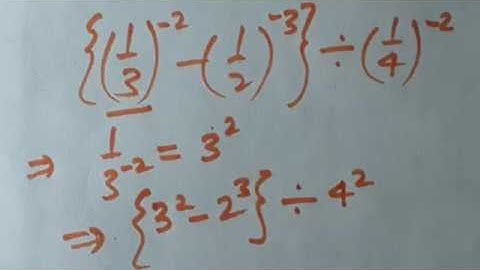 {(1/3)⁻² - (1/2)⁻³} ÷ (1/4)⁻²
⇒ 1/3⁻² = 3²
⇒ {3² - 2³} ÷ 4²